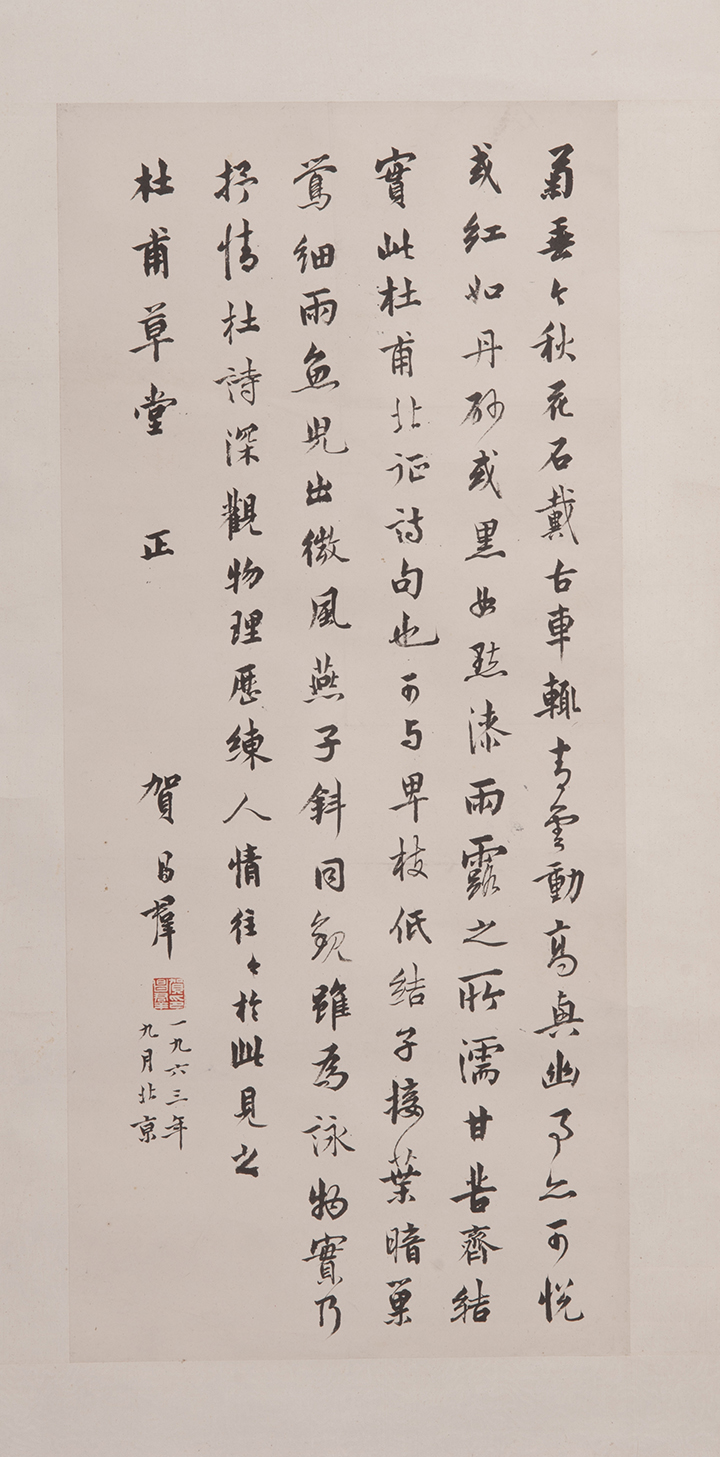 菊垂今秋花石戴古車轍青雲動高興幽事亦可悅
或紅如丹砂或黑如點漆雨露之所濡甘苦齊結
實此杜甫北征詩句也可与卑枝低結子接葉暗巢
鶯細雨魚兒出微風燕子斜同觀雖為詠物實乃
抒情杜詩深觀物理歷練人情往々於此見之
杜甫草堂 正 賀昌羣
一九六三年
九月北京